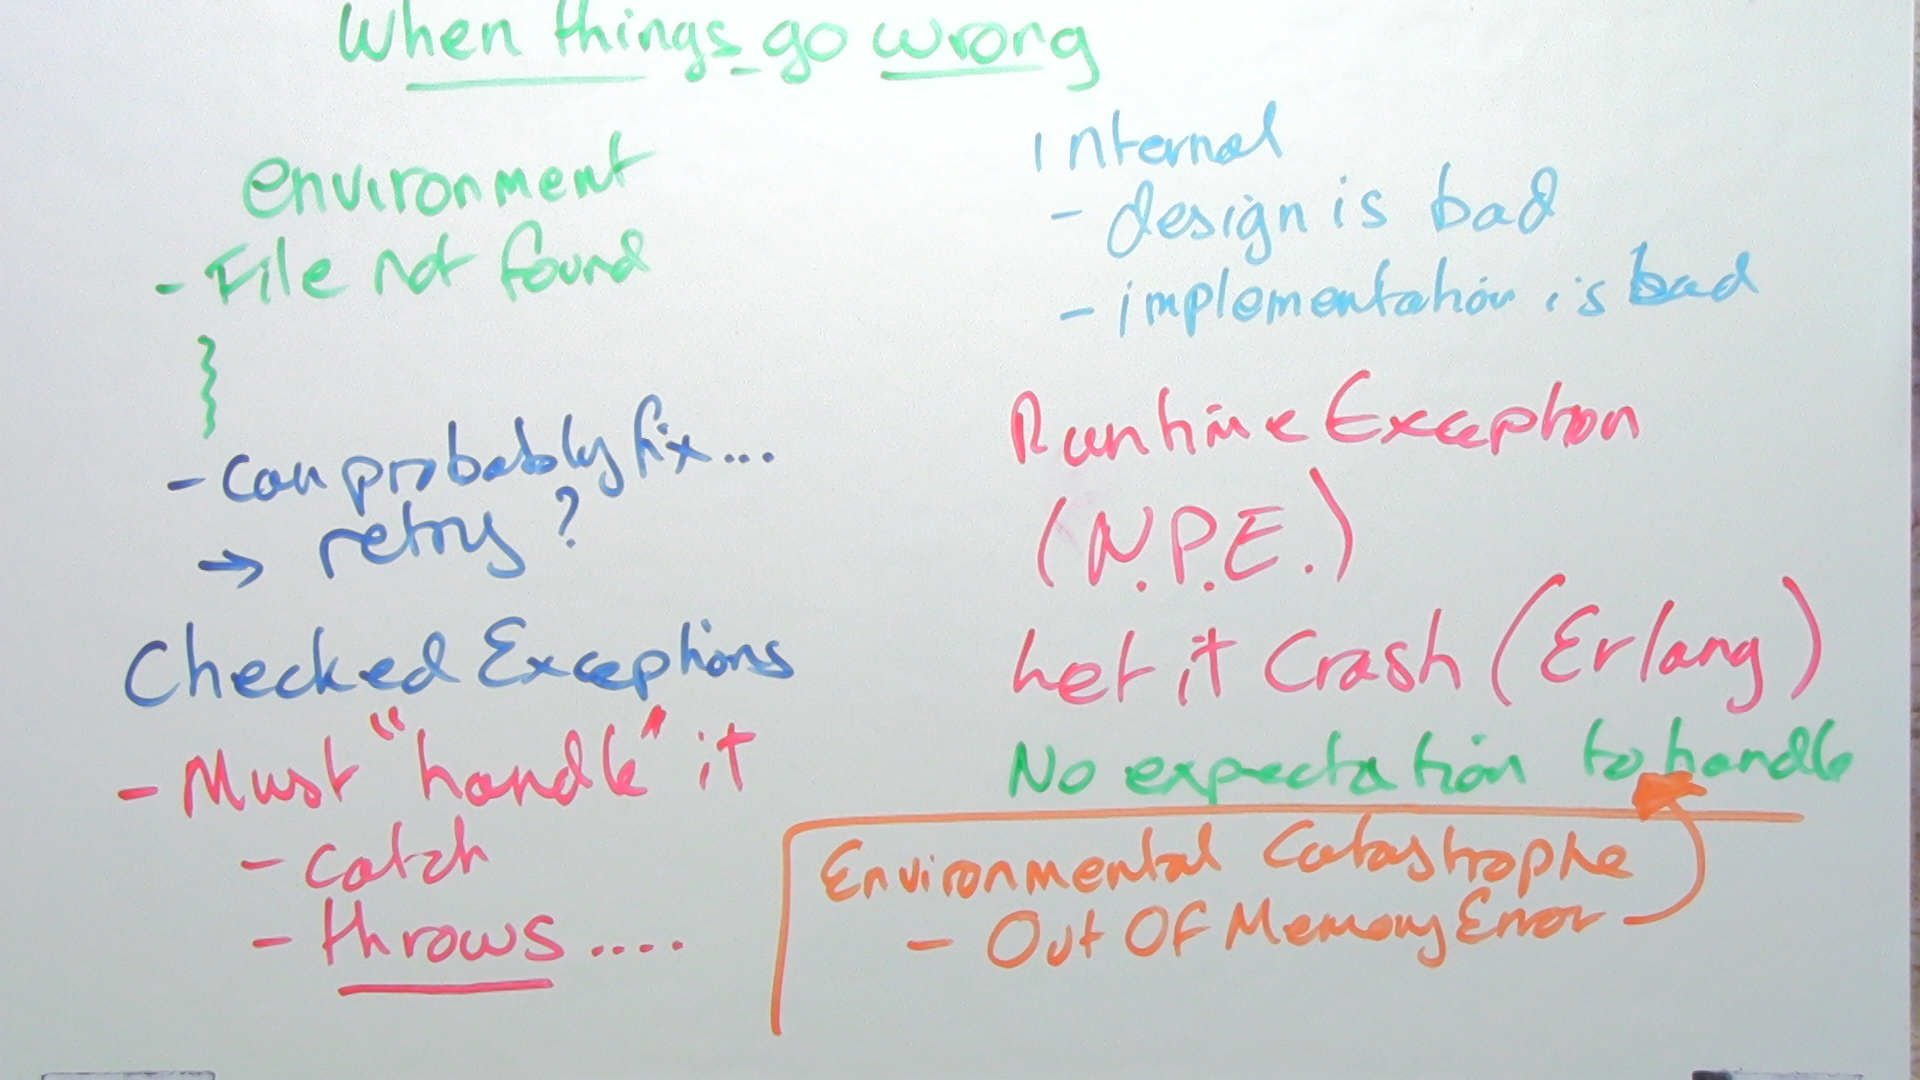 When things go wrong
environment
- File not found
- can probably fix...
→ retry?
Checked Exceptions
- Must "handle" it
- catch
- throws ....
Internal
- design is bad
- implementation is bad
Runtime Exception
(N.P.E.)
Let it Crash (Erlang)
No expectation to handle
Environmental Catastrophe
- Out Of Memory Error